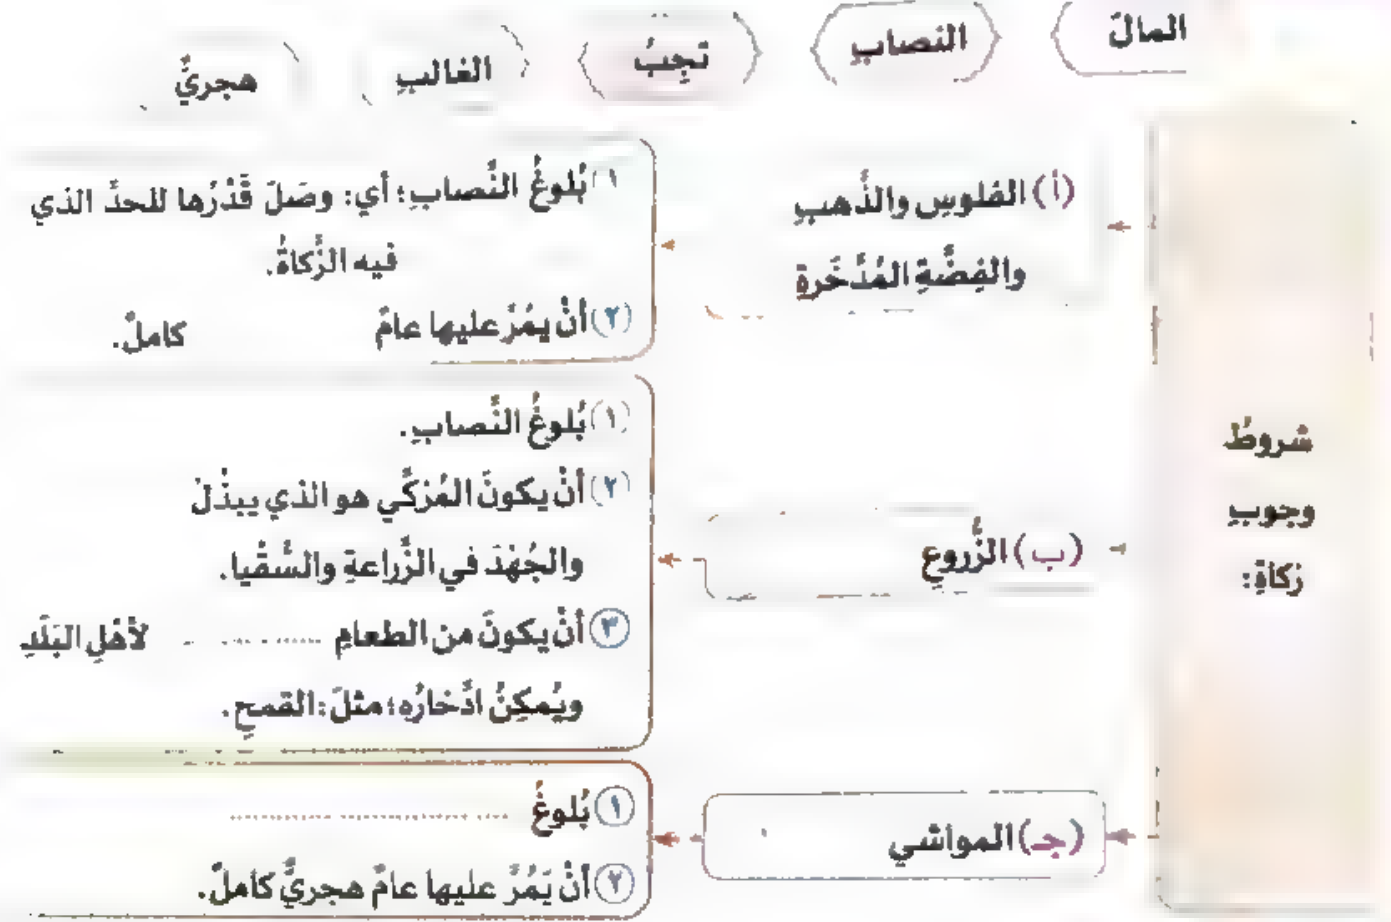 المالَ
النصابِ
تجِبُ
الغالبِ
هجريٌّ
شروطُ
وجوبِ
زكاةِ:
(أ) الفلوسِ والذَّهبِ
والفِضَّةِ المُدَّخَرةِ
١ بُلوغُ النِّصابِ؛ أي: وصَلَ قَدْرُها للحدِّ الذي
فيه الزَّكاةُ.
(٢) أنْ يمُرَّ عليها عامٌ كاملٌ.
(ب) الزُّروعِ
(١) بُلوغُ النِّصابِ.
(٢) أنْ يكونَ المُزكِّي هو الذي يبذُلُ
والجُهْدَ في الزِّراعةِ والسُّقْيا.
(٣) أنْ يكونَ من الطعامِ .................... لأهْلِ البَلَدِ
ويُمكِنُ ادِّخارُه؛ مثلَ: القمحِ.
(جـ) المواشي
(١) بُلوغُ ..............................
(٢) أنْ يَمُرَّ عليها عامٌ هجريٌّ كاملٌ.